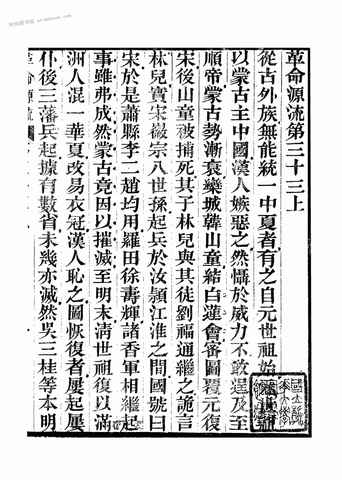 革命源流第三十三上
從古外族無能統一中夏者有之自元世祖始
以蒙古主中國漢人嫉惡之然懾於威力不敢逞及至
順帝蒙古勢漸衰欒城韓山童結白蓮會審圖覆元復
宋後山童被捕死其子林兒與其徒劉福通繼之詭言
林兒實宋徽宗八世孫起兵於汝潁江淮之間國號曰
宋於是蕭縣李二趙均用羅田徐壽輝諸香軍相繼起
事雖弗成然蒙古竟因以摧滅至明末清世祖復以滿
洲人混一華夏改易衣冠漢人恥之圖恢復者屢起屢
仆後三藩兵起據有數省未幾亦滅然吳三桂等本明